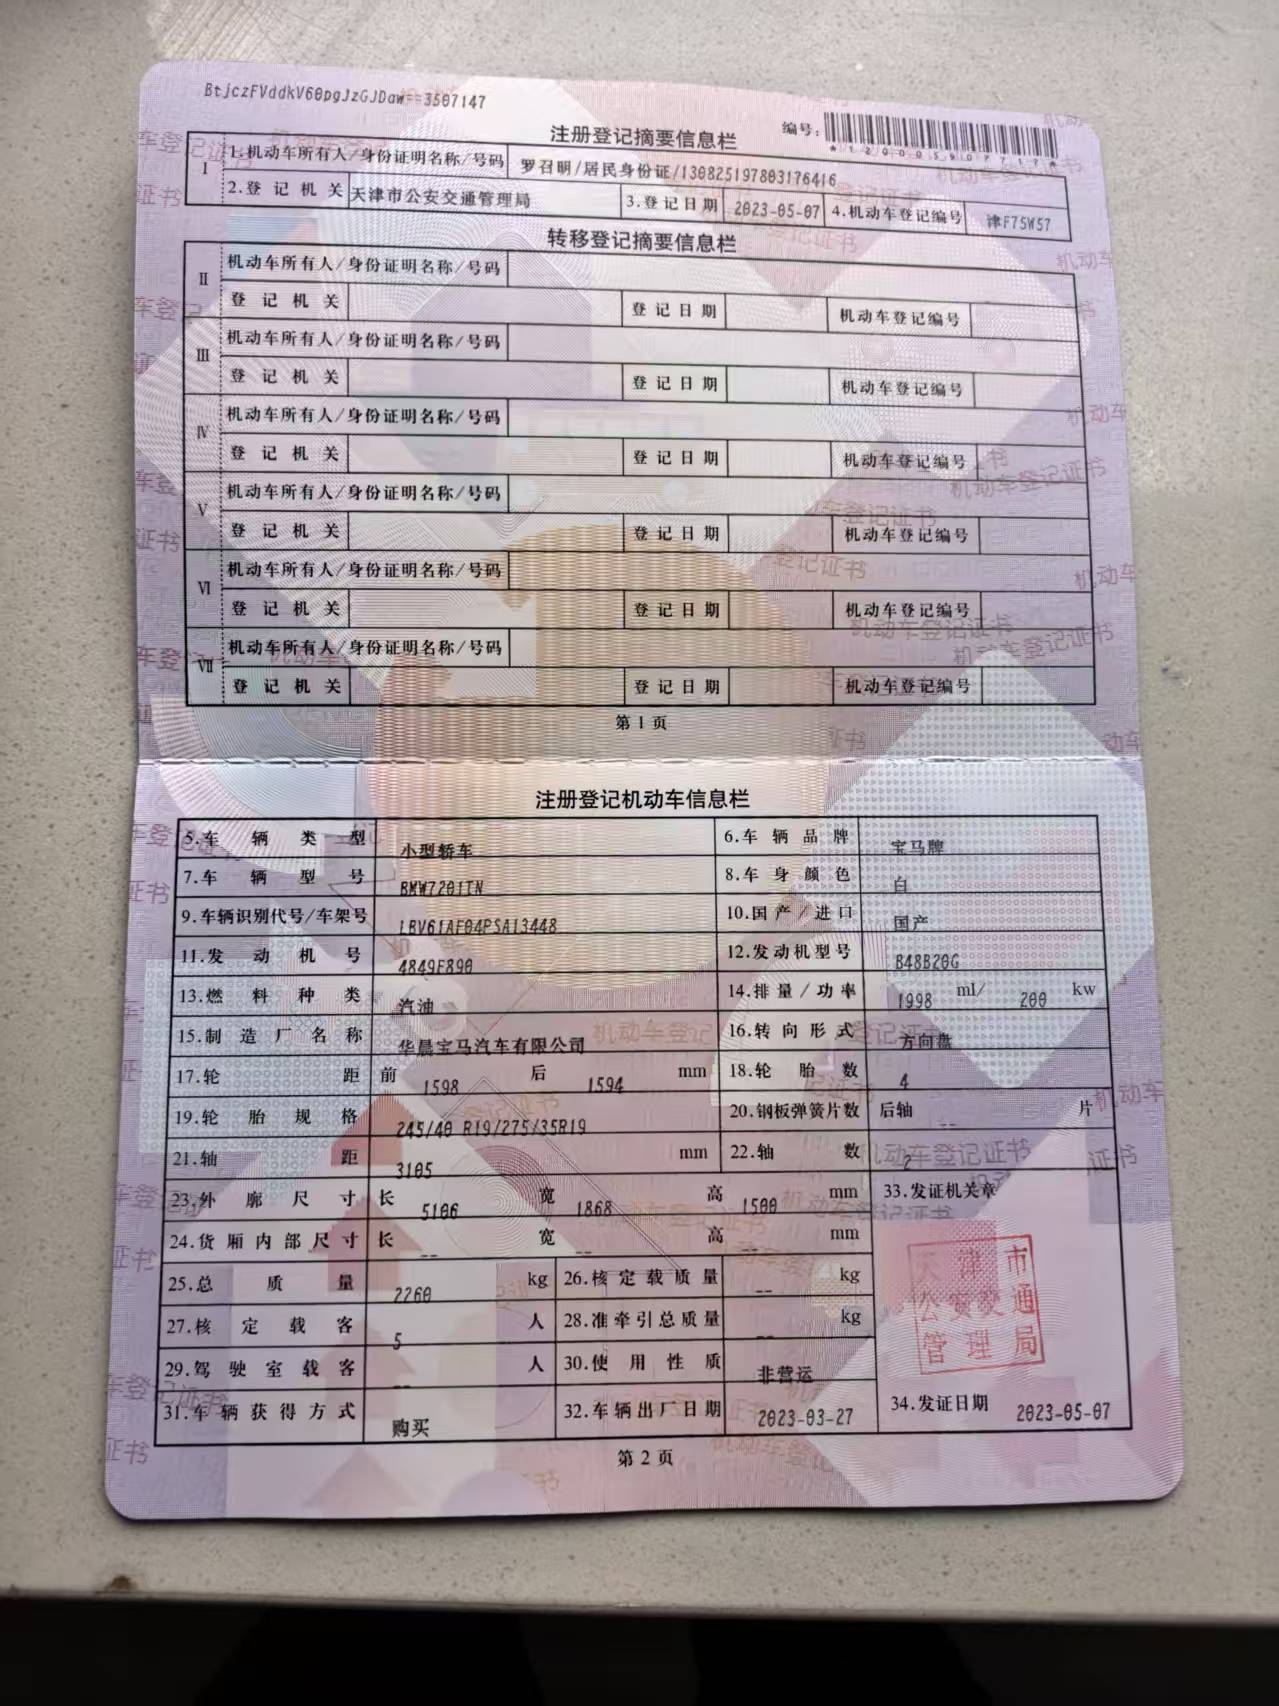 BtjczFVddkV60pgJzGJDaw==3507147
注册登记摘要信息栏
编号:
I
1.机动车所有人/身份证明名称/号码 罗召明/居民身份证/130825197803176416
2.登记机关 天津市公安交通管理局 3.登记日期 2023-05-07 4.机动车登记编号 津F75W57
转移登记摘要信息栏
II
机动车所有人/身份证明名称/号码
登记机关 登记日期 机动车登记编号
III
机动车所有人/身份证明名称/号码
登记机关 登记日期 机动车登记编号
IV
机动车所有人/身份证明名称/号码
登记机关 登记日期 机动车登记编号
V
机动车所有人/身份证明名称/号码
登记机关 登记日期 机动车登记编号
VI
机动车所有人/身份证明名称/号码
登记机关 登记日期 机动车登记编号
VII
机动车所有人/身份证明名称/号码
登记机关 登记日期 机动车登记编号
第1页
注册登记机动车信息栏
5.车辆类型 小型轿车 6.车辆品牌 宝马牌
7.车辆型号 BMW7201TN 8.车身颜色 白
9.车辆识别代号/车架号 LBV61AF04PSA13448 10.国产/进口 国产
11.发动机号 4849F890 12.发动机型号 B48B20G
13.燃料种类 汽油 14.排量/功率 1998 ml/ 200 kw
15.制造厂名称 华晨宝马汽车有限公司 16.转向形式 方向盘
17.轮距 前 1598 后 1594 mm 18.轮胎数 4
19.轮胎规格 245/40 R19/275/35R19 20.钢板弹簧片数 后轴 -- 片
21.轴距 3105 mm 22.轴数 2
23.外廓尺寸 长 5106 宽 1868 高 1500 mm 33.发证机关章
24.货厢内部尺寸 长 -- 宽 -- 高 -- mm
25.总质量 2260 kg 26.核定载质量 -- kg
27.核定载客 5 人 28.准牵引总质量 -- kg
29.驾驶室载客 -- 人 30.使用性质 非营运
31.车辆获得方式 购买 32.车辆出厂日期 2023-03-27 34.发证日期 2023-05-07
天津市
公安交通
管理局
第2页